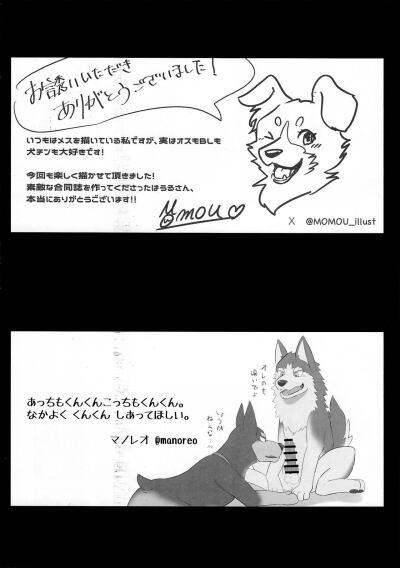 お誘いいただき
ありがとうございました!
いつもはメスを描いている私ですが、実はオスもBLも
犬チンも大好きです!
今回も楽しく描かせて頂きました!
素敵な合同誌を作ってくださったはうるさん、
本当にありがとうございます!!
MOMOU♡
X @MOMOU_illust
あっちもくんくんこっちもくんくん。
なかよく くんくん しあってほしい。
マノレオ @manoreo
オレのも
嗅いでよ
しょうが
ねぇな~